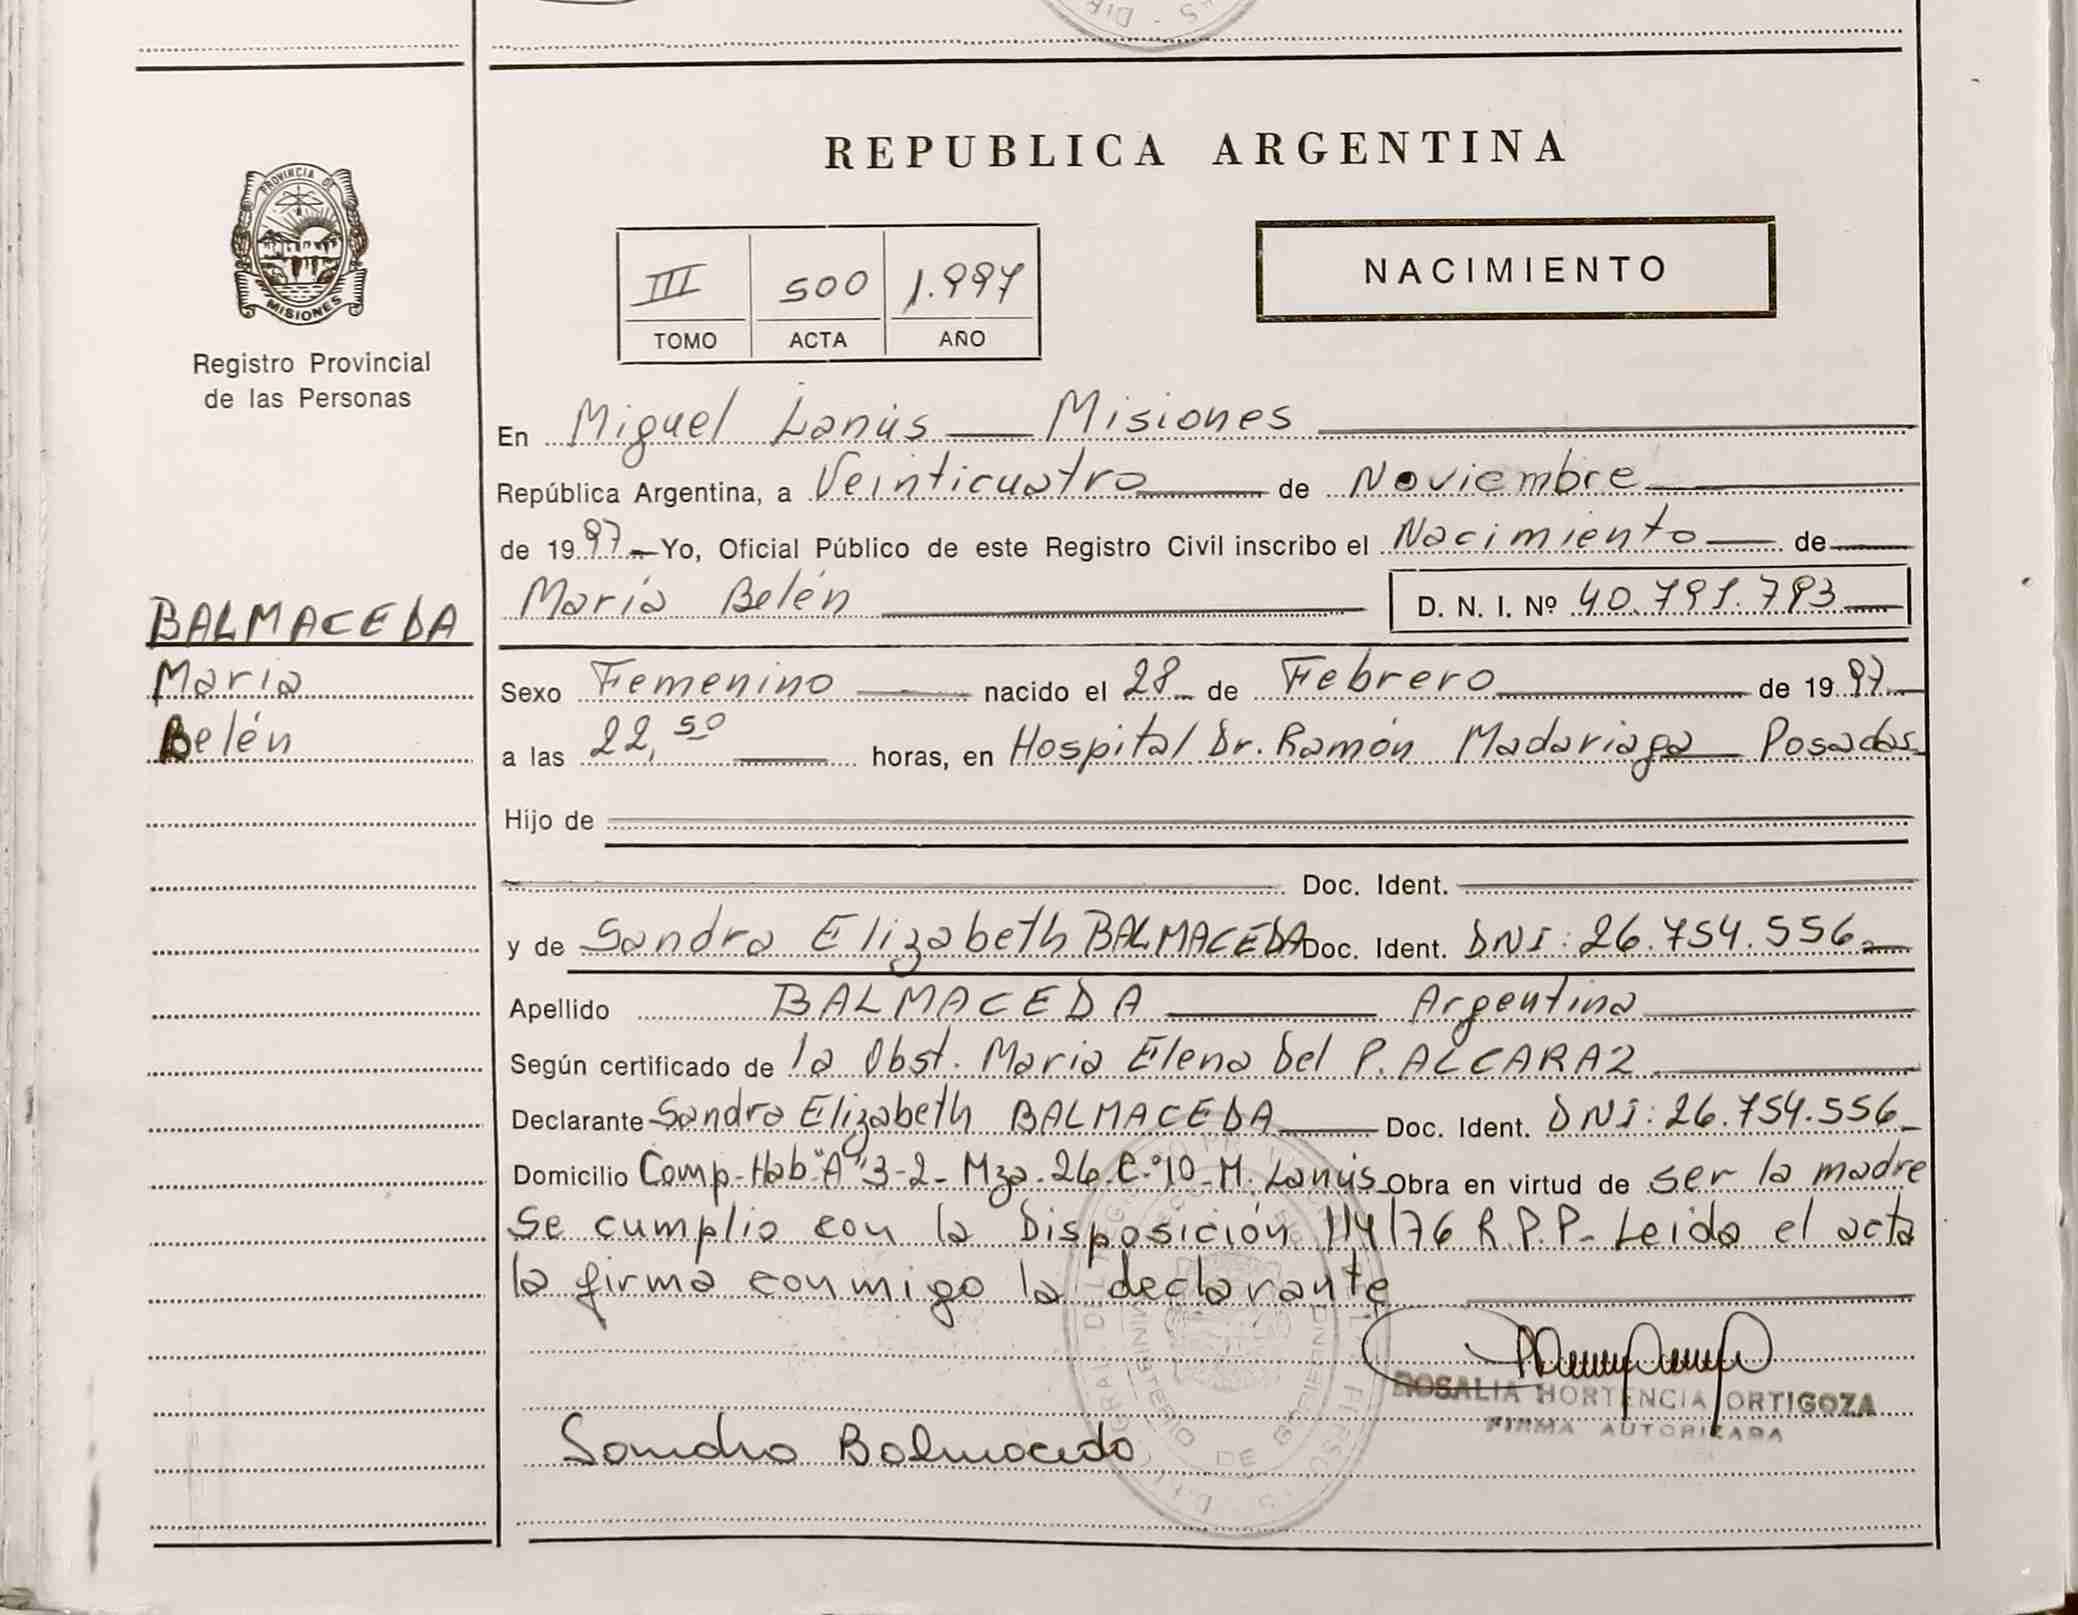 REPUBLICA ARGENTINA
PROVINCIA DE
MISIONES
Registro Provincial
de las Personas
III 500 1.997
TOMO ACTA AÑO
NACIMIENTO
En Miguel Lanús Misiones
República Argentina, a Veinticuatro de Noviembre
de 1997 Yo, Oficial Público de este Registro Civil inscribo el Nacimiento de
María Belén D. N. I. Nº 40.791.793
BALMACEDA
Maria
Belén
Sexo Femenino nacido el 28 de Febrero de 1997
a las 22,50 horas, en Hospital Dr. Ramón Madariaga Posadas
Hijo de
Doc. Ident.
y de Sandra Elizabeth BALMACEDA Doc. Ident. DNI: 26.754.556
Apellido BALMACEDA Argentina
Según certificado de la Obst. Maria Elena Del P. ALCARAZ
Declarante Sandra Elizabeth BALMACEDA Doc. Ident. DNI: 26.754.556
Domicilio Comp-Hab "A" 3-2- Mza. 26 C. º10 - M. Lanús Obra en virtud de ser la madre
Se cumplio con la Disposición 114/76 R.P.P- Leida el acta
la firma conmigo la declarante
ROSALIA HORTENCIA ORTIGOZA
FIRMA AUTORIZADA
Sandra Balmaceda